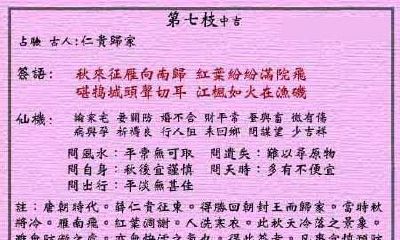 第七枝中吉
占驗 古人:仁貴歸家
簽語: 秋來征雁向南歸 紅葉紛紛滿院飛
砧搗城頭聲切耳 江楓如火在漁磯
仙機: 論家宅 要關防 婚不合 財平常 蚕與畜 微有傷
病與孕 祈禱良 行人阻 未回鄉 問謀望 少吉祥
問風水:平常無可取 問遺失:難以尋原物
問自身:秋後宜謹慎 問天時:多有不便宜
問出行:平淡無甚佳
註:唐朝時代。薛仁貴征東。得勝回朝封王而歸家。當時秋
將冷。雁南飛。紅葉凋謝。人洗寒衣。此秋天冷落之景象。